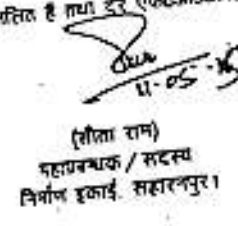 है तथा
11-05-
(सीता राम)
महाप्रबन्धक / सदस्य
निर्माण इकाई, सहारनपुर।